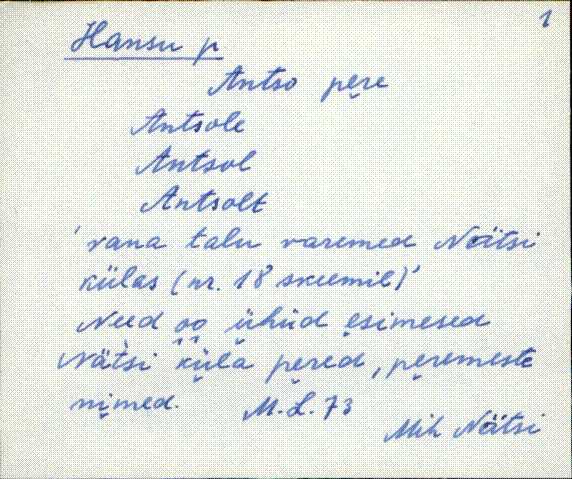 1
Hansu p
Antso pere
Antsole
Antsol
Antsolt
'vana talu varemed Nätsi
külas (nr. 18 skeemil)'
Need oo ühüd esimesed
Nätsi küla pered, peremeste
nimed. M.L. 73
Mih Nätsi